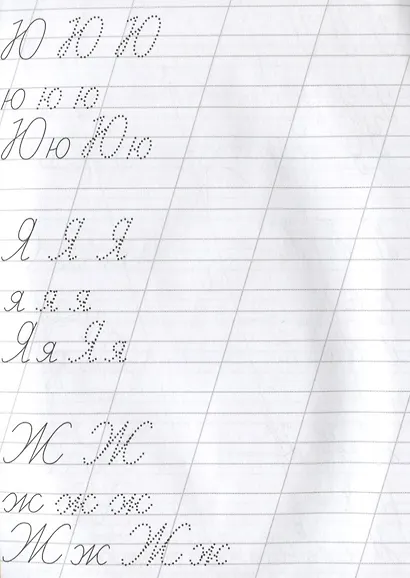 Ю Ю Ю
ю ю ю
Юю Юю
Я Я Я
я я я
Яя Яя
Ж Ж
ж ж ж
Жж Жж